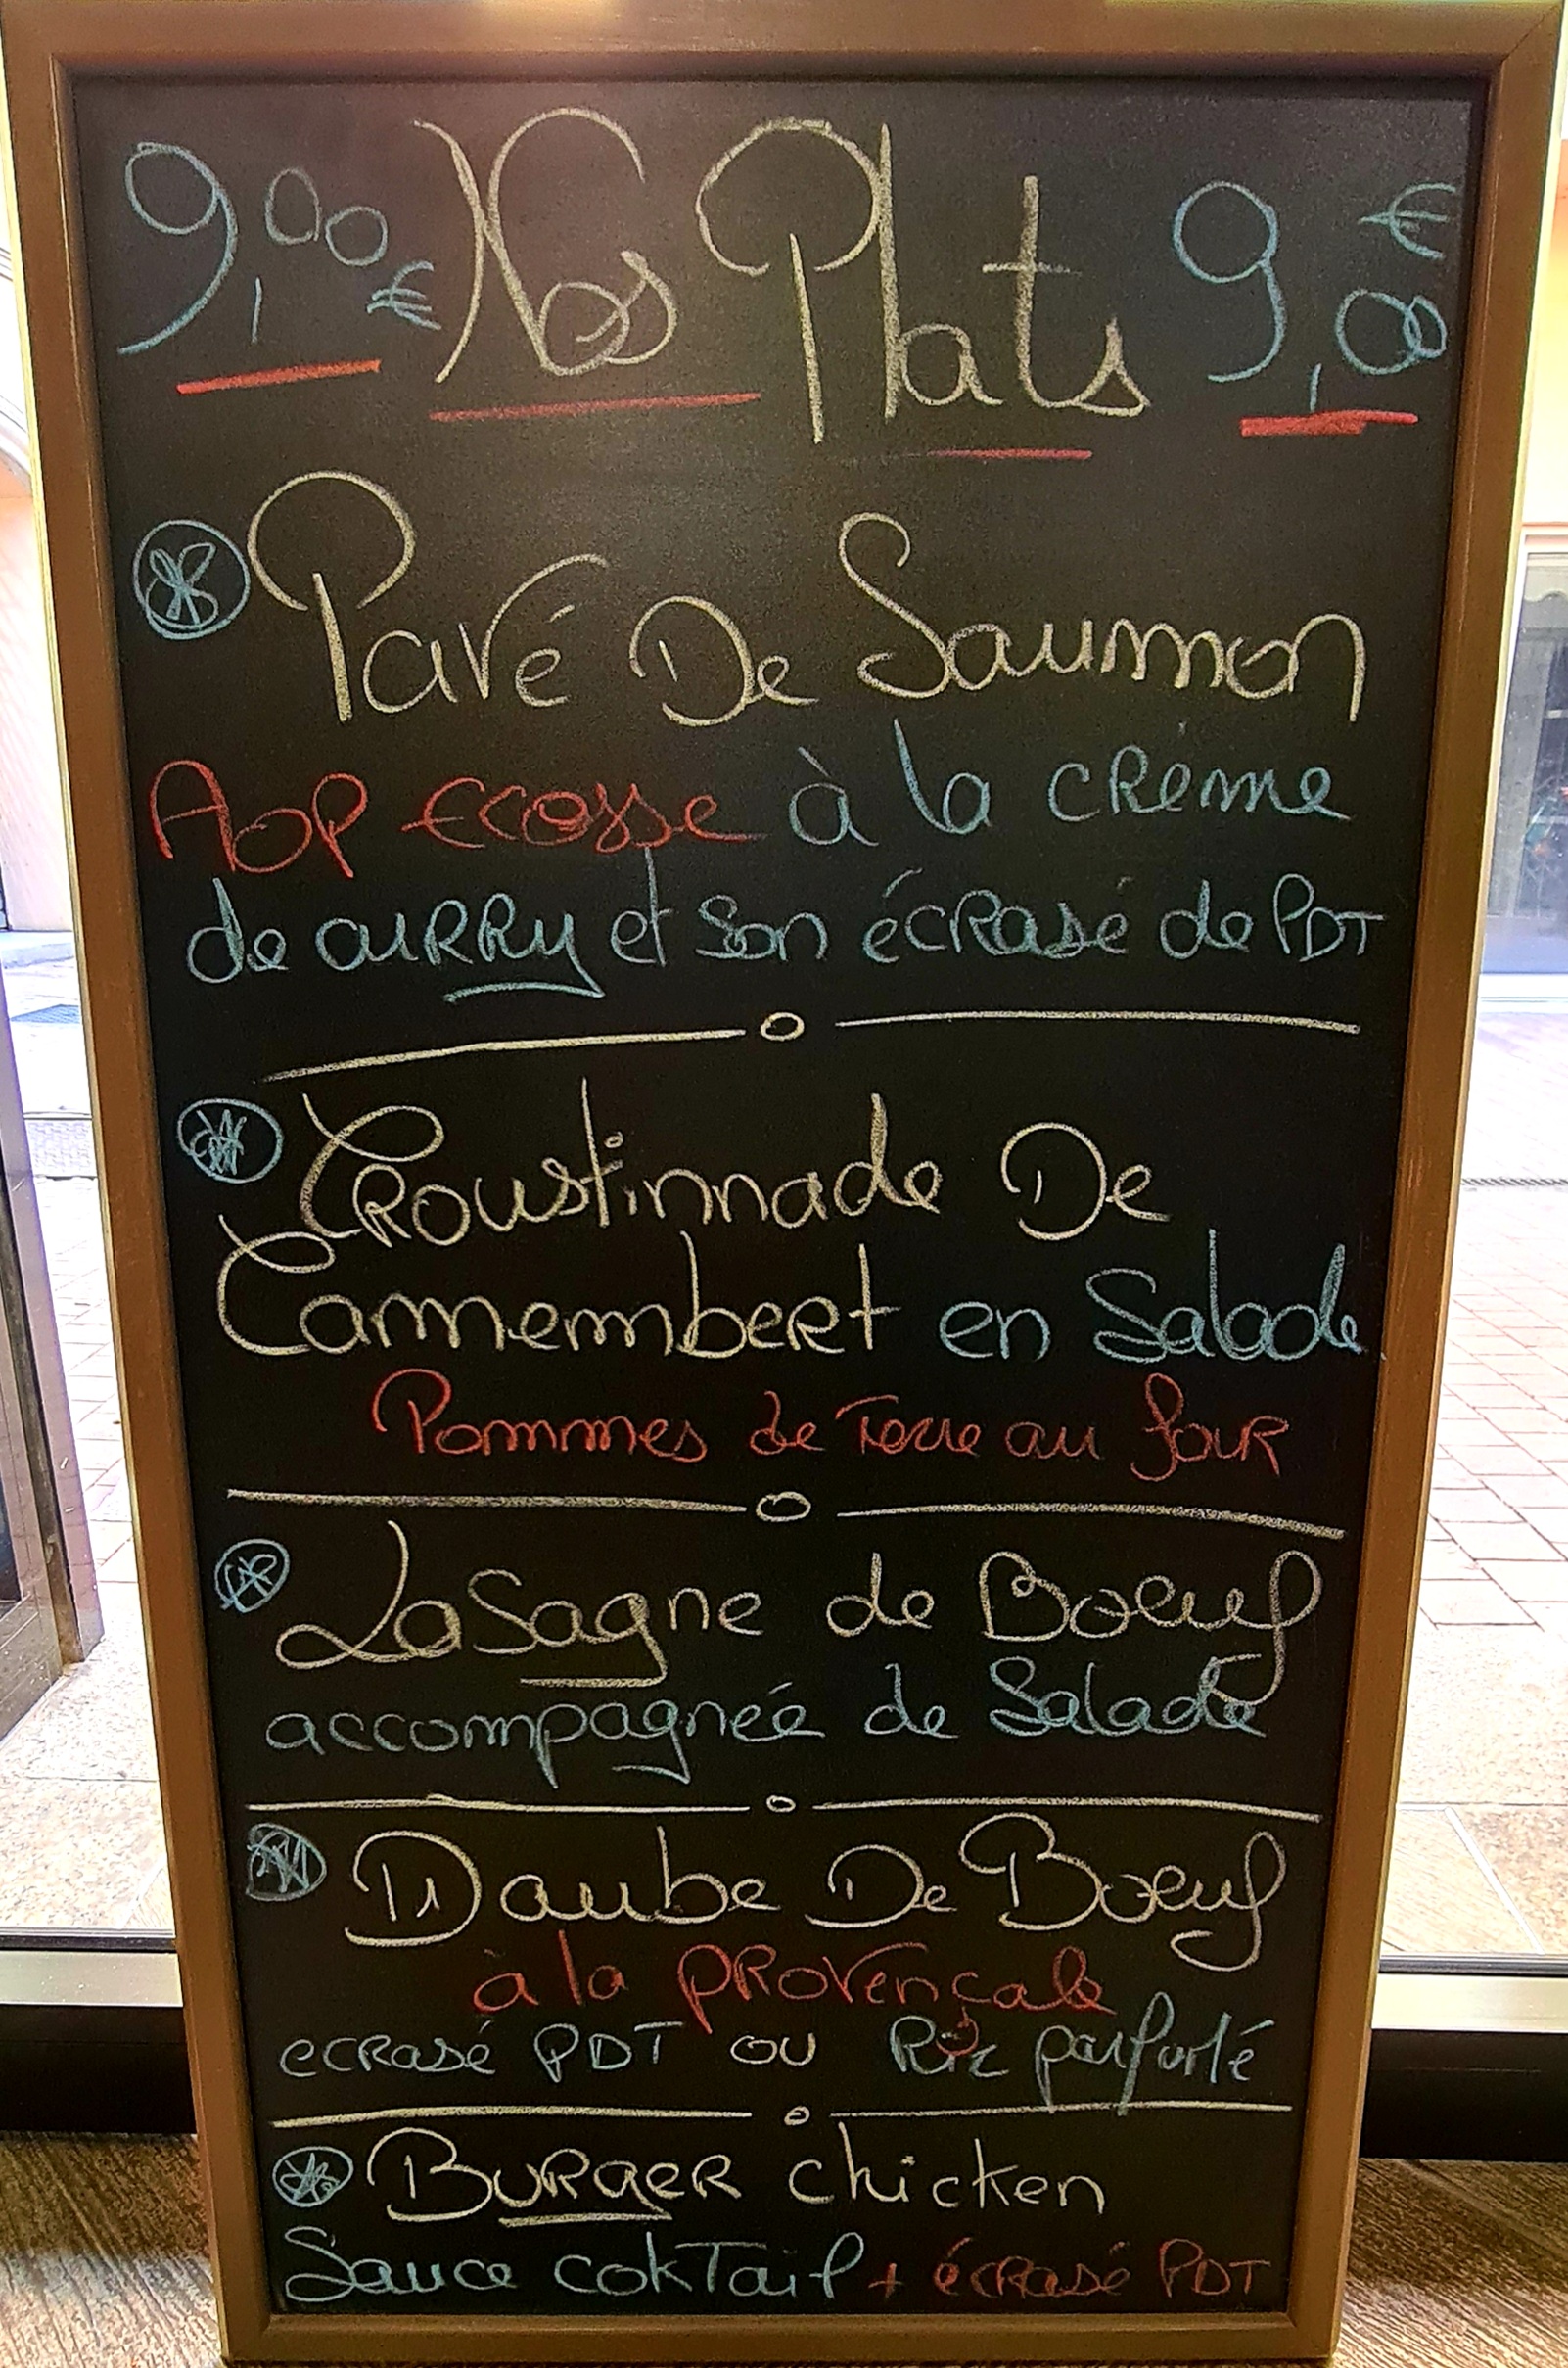 9,00 € Nos Plats 9,00 €
Pavé De Saumon
AOP Ecosse à la crème
de curry et son écrasé de PDT
Croustinnade De
Camembert en Salade
Pommes de Terre au four
Lasagne de Boeuf
accompagnée de Salade
Daube De Boeuf
à la provençale
ecrasé PDT ou Riz parfumé
Burger chicken
Sauce cokTail + écrasé PDT